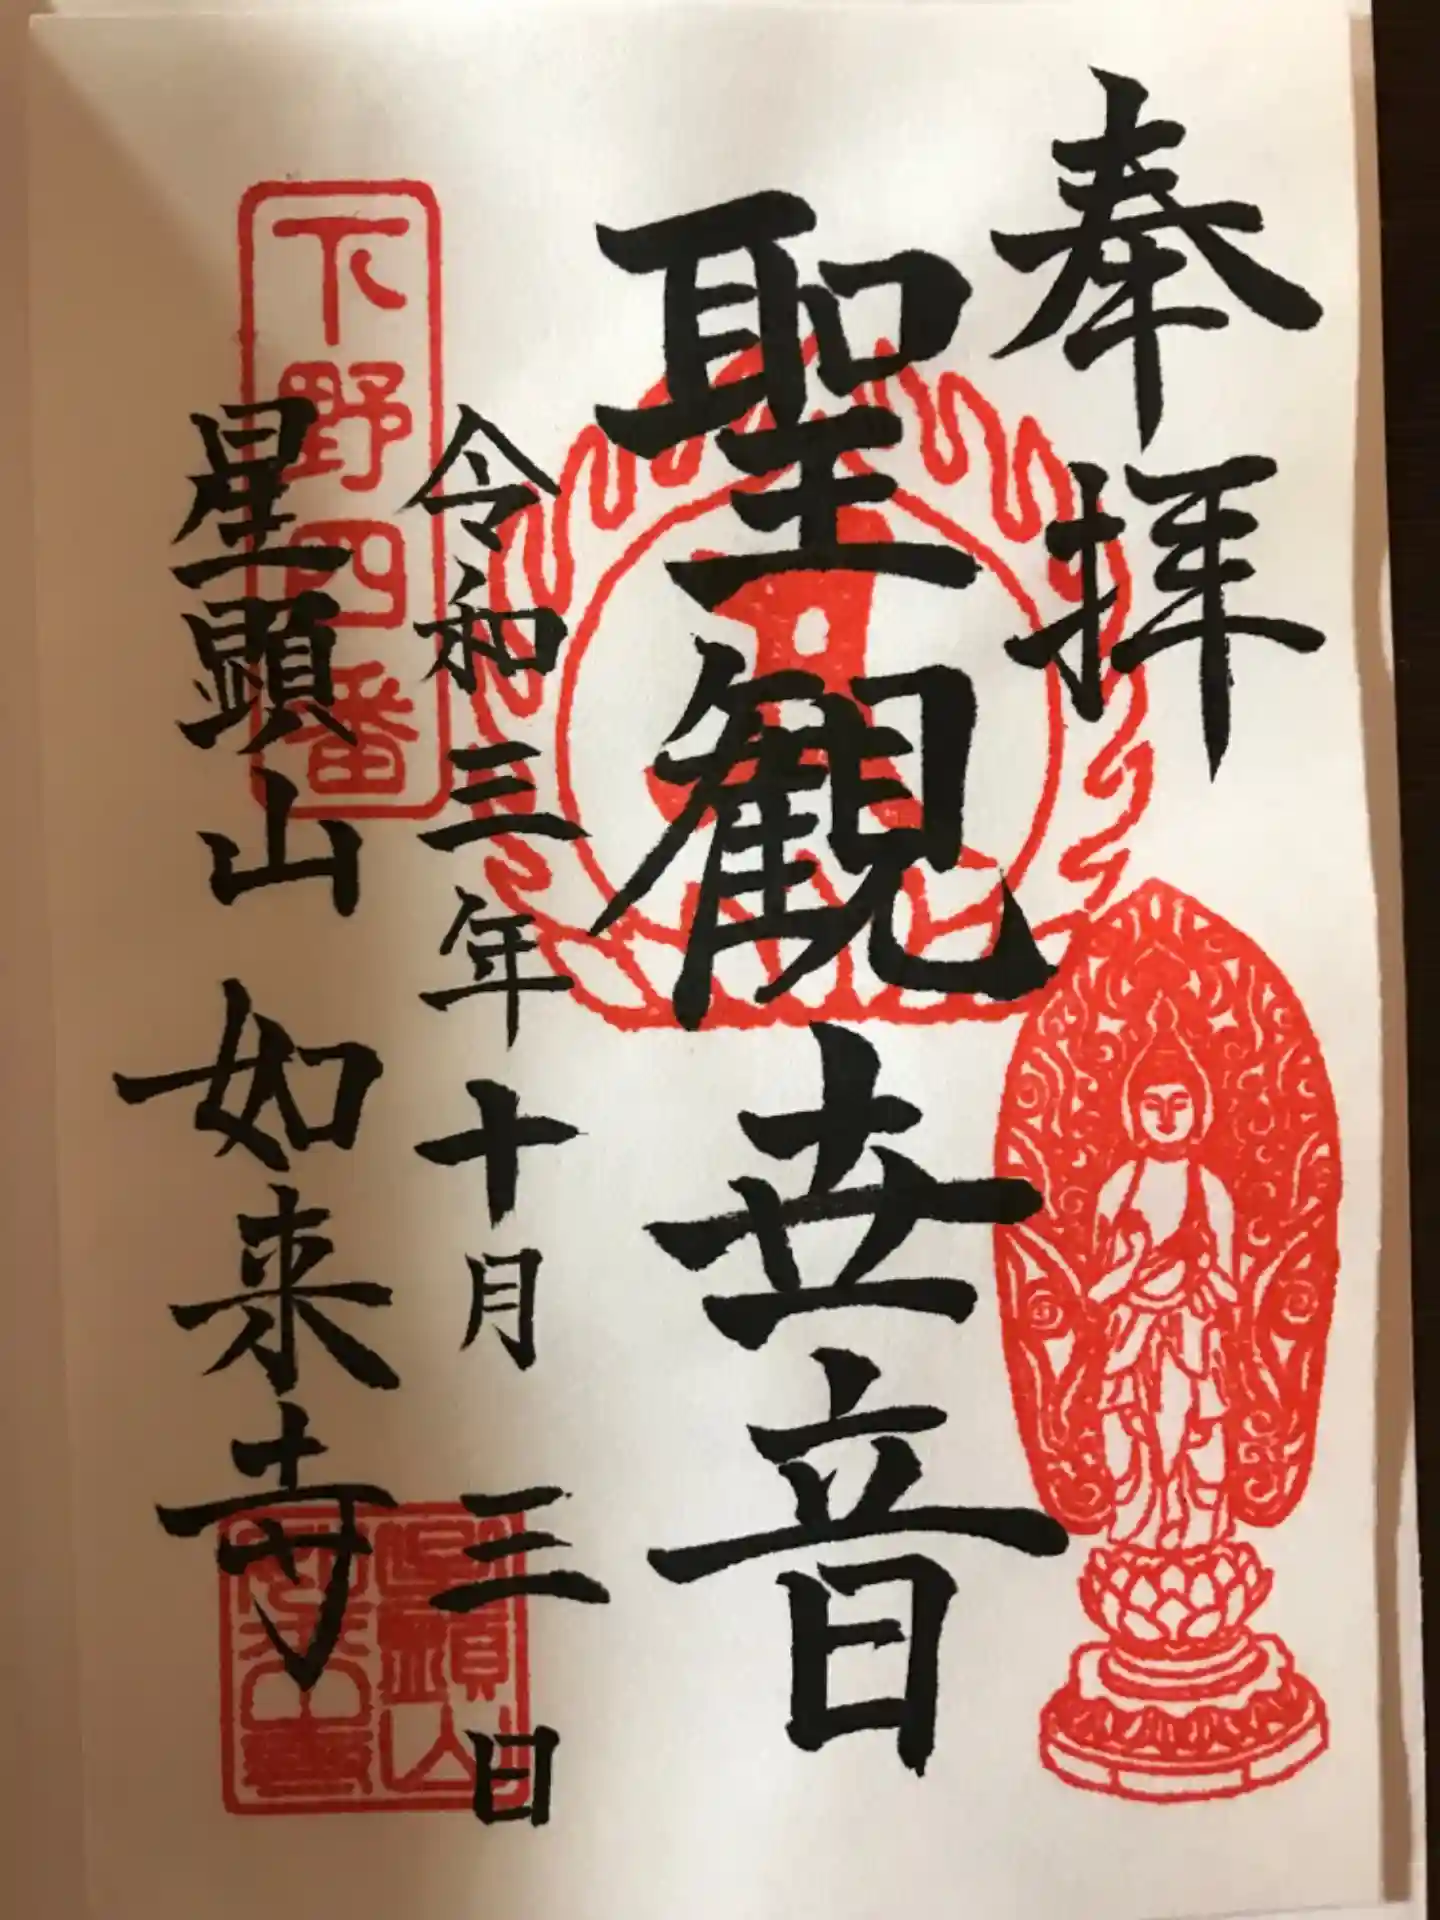 奉拝
聖観世音
令和三年十月三日
星顕山 如来寺
下野四番